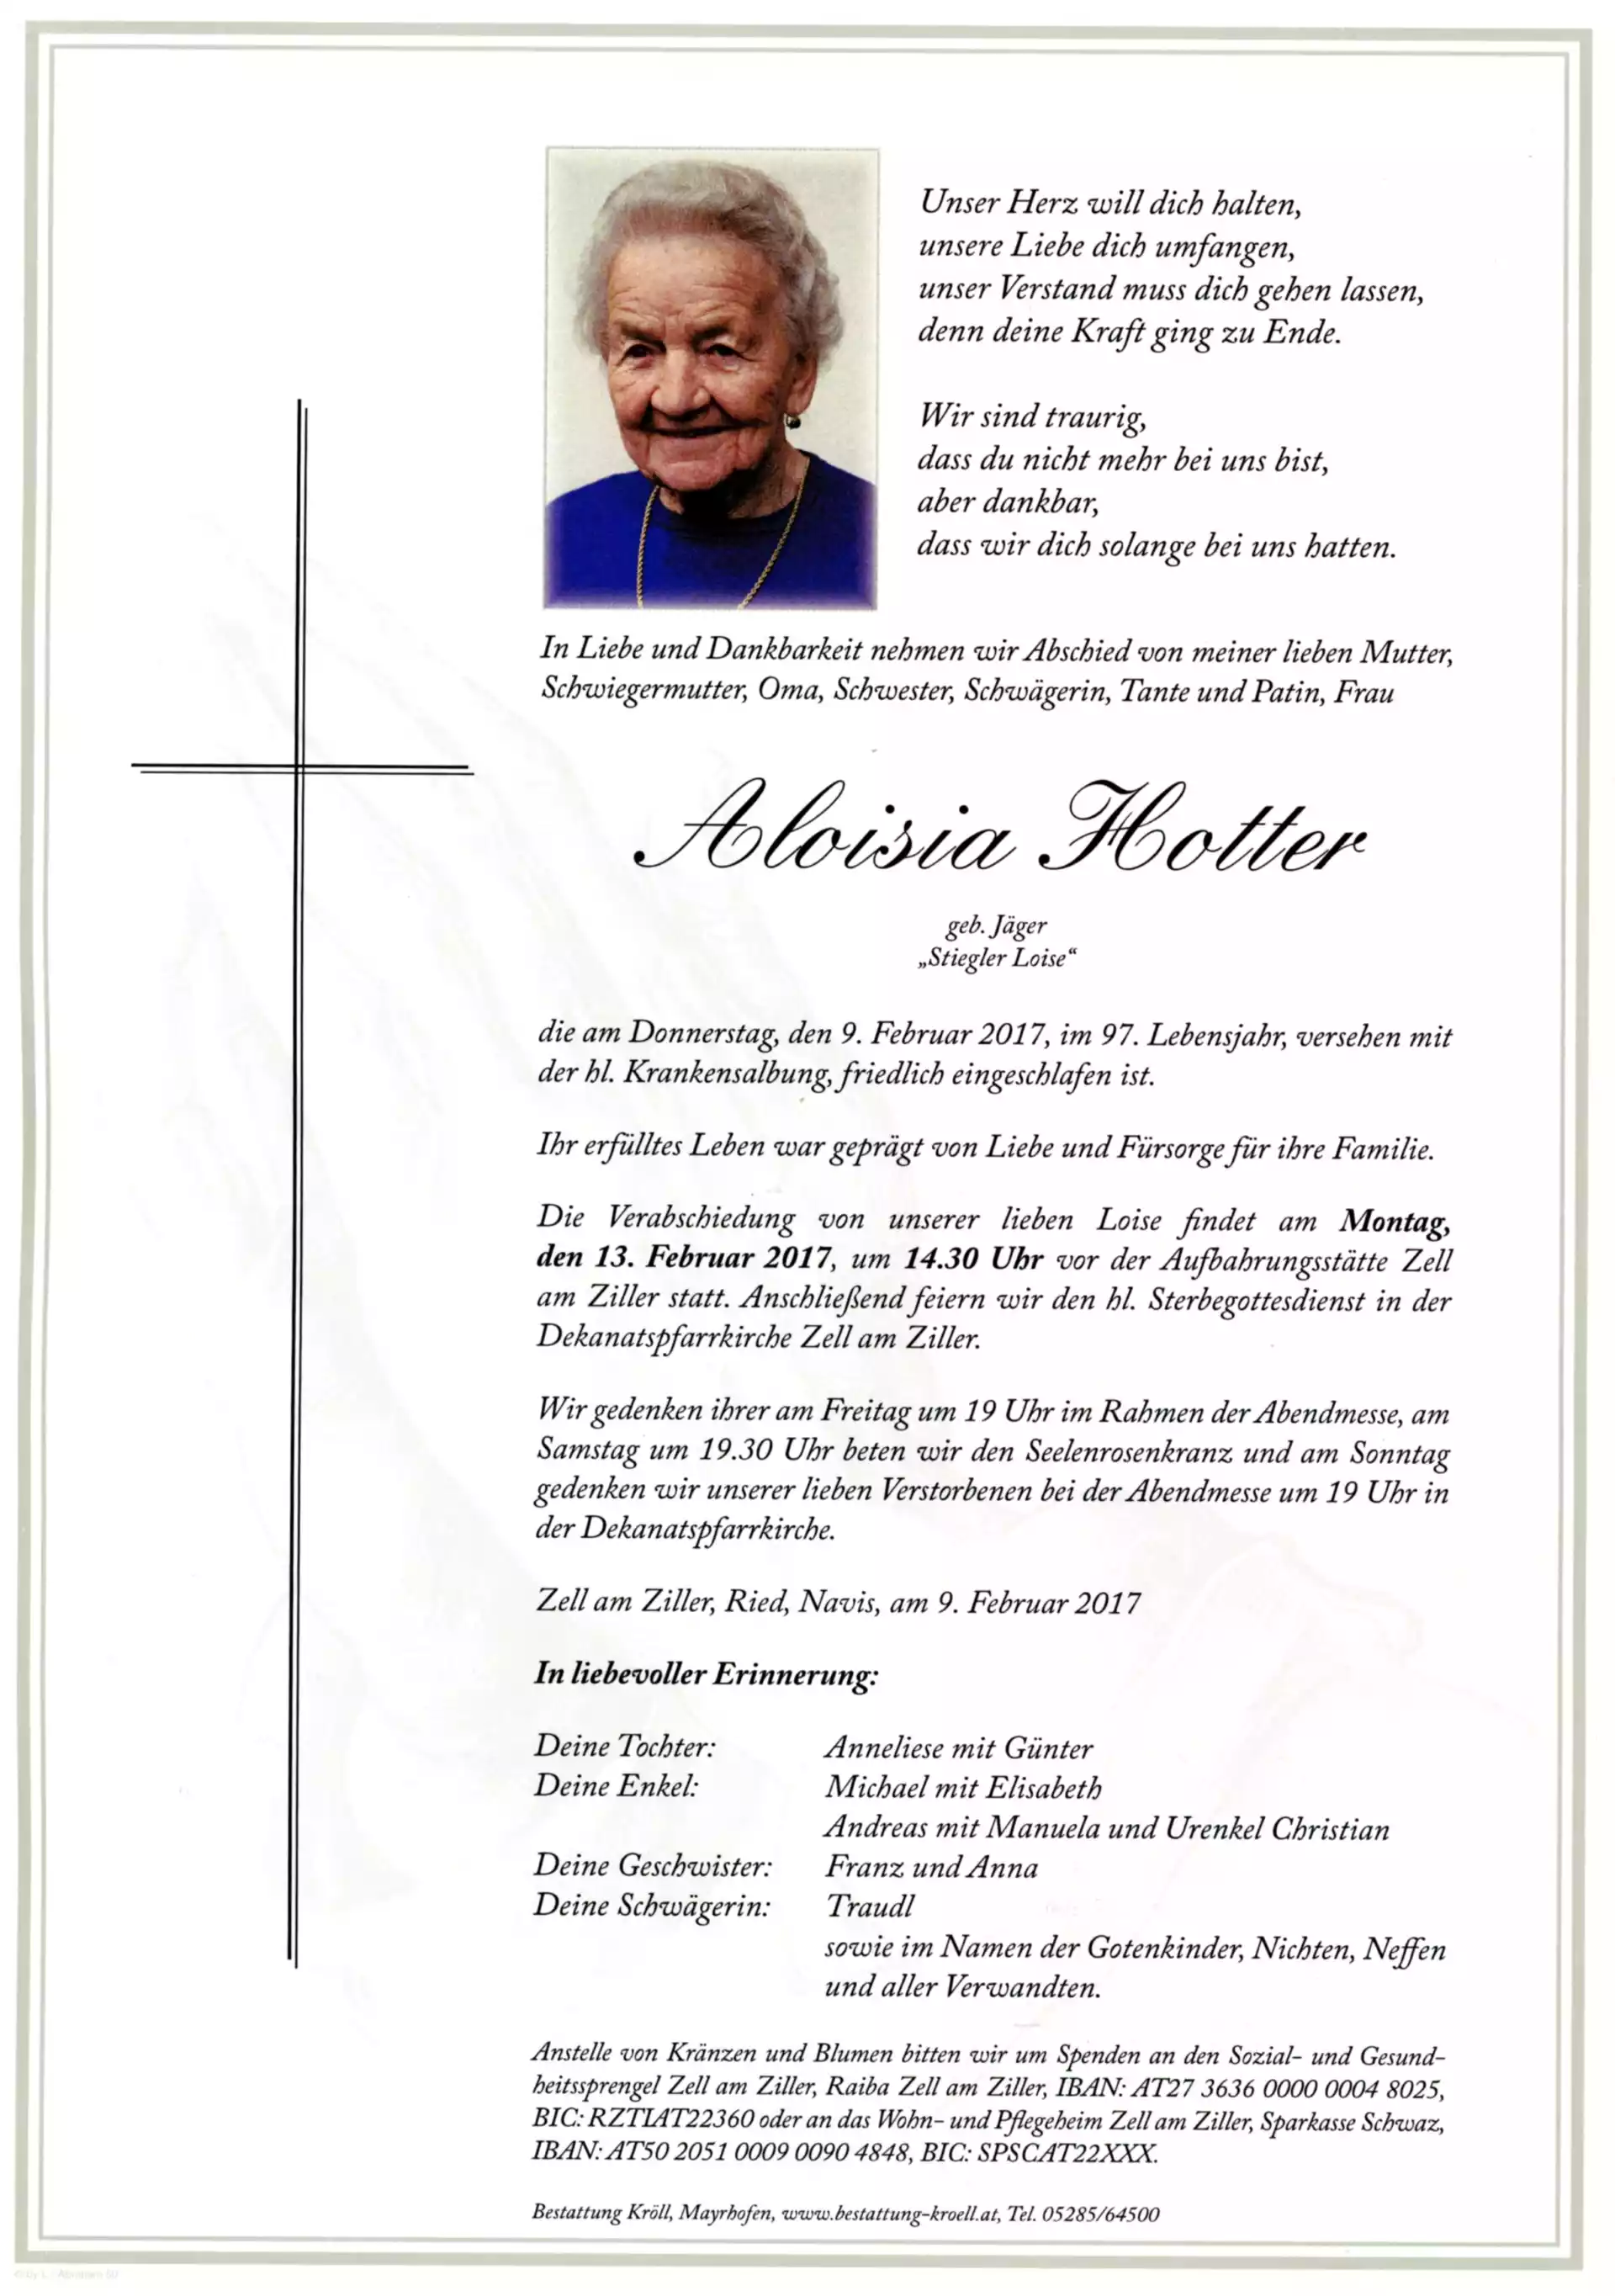 Unser Herz will dich halten,
unsere Liebe dich umfangen,
unser Verstand muss dich gehen lassen,
denn deine Kraft ging zu Ende.
Wir sind traurig,
dass du nicht mehr bei uns bist,
aber dankbar,
dass wir dich solange bei uns hatten.
In Liebe und Dankbarkeit nehmen wir Abschied von meiner lieben Mutter,
Schwiegermutter, Oma, Schwester, Schwägerin, Tante und Patin, Frau
Aloisia Hotter
geb. Jäger
„Stiegler Loise“
die am Donnerstag, den 9. Februar 2017, im 97. Lebensjahr, versehen mit
der hl. Krankensalbung, friedlich eingeschlafen ist.
Ihr erfülltes Leben war geprägt von Liebe und Fürsorge für ihre Familie.
Die Verabschiedung von unserer lieben Loise findet am Montag,
den 13. Februar 2017, um 14.30 Uhr vor der Aufbahrungsstätte Zell
am Ziller statt. Anschließend feiern wir den hl. Sterbegottesdienst in der
Dekanatspfarrkirche Zell am Ziller.
Wir gedenken ihrer am Freitag um 19 Uhr im Rahmen der Abendmesse, am
Samstag um 19.30 Uhr beten wir den Seelenrosenkranz und am Sonntag
gedenken wir unserer lieben Verstorbenen bei der Abendmesse um 19 Uhr in
der Dekanatspfarrkirche.
Zell am Ziller, Ried, Navis, am 9. Februar 2017
In liebevoller Erinnerung:
Deine Tochter: Anneliese mit Günter
Deine Enkel: Michael mit Elisabeth
Andreas mit Manuela und Urenkel Christian
Deine Geschwister: Franz und Anna
Deine Schwägerin: Traudl
sowie im Namen der Gotenkinder, Nichten, Neffen
und aller Verwandten.
Anstelle von Kränzen und Blumen bitten wir um Spenden an den Sozial- und Gesund-
heitssprengel Zell am Ziller, Raiba Zell am Ziller, IBAN: AT27 3636 0000 0004 8025,
BIC: RZTIAT22360 oder an das Wohn- und Pflegeheim Zell am Ziller, Sparkasse Schwaz,
IBAN: AT50 2051 0009 0090 4848, BIC: SPSCAT22XXX.
Bestattung Kröll, Mayrhofen, www.bestattung-kroell.at, Tel. 05285/64500